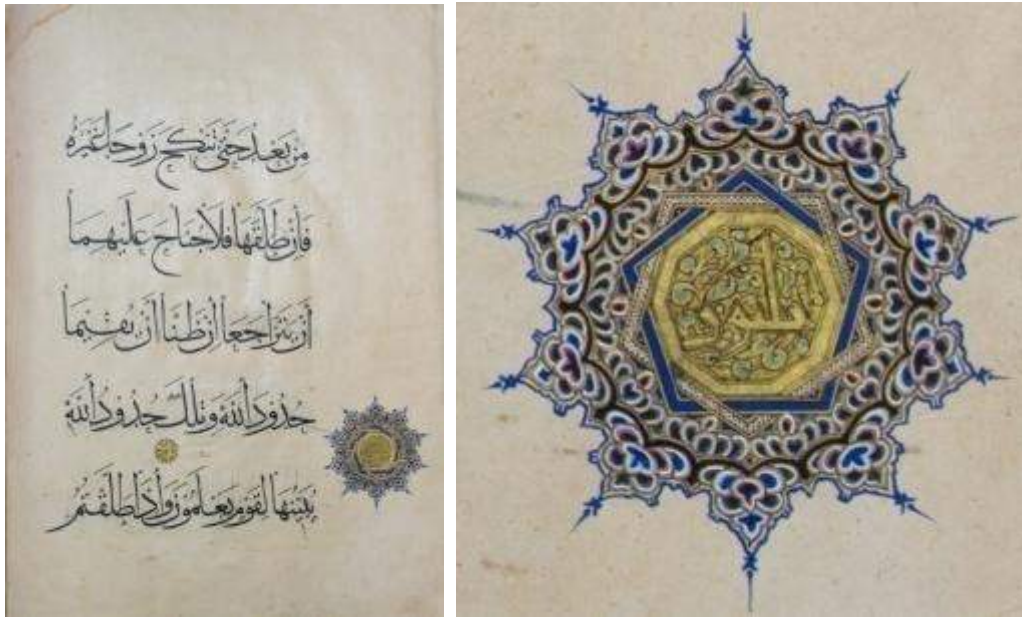 مِنْ بَعْدُ حَتَّىٰ تَنْكِحَ زَوْجًا غَيْرَهُ
فَإِنْ طَلَّقَهَا فَلَا جُنَاحَ عَلَيْهِمَا
أَنْ يَتَرَاجَعَا إِنْ ظَنَّا أَنْ يُقِيمَا
حُدُودَ اللَّهِ وَتِلْكَ حُدُودُ اللَّهِ
يُبَيِّنُهَا لِقَوْمٍ يَعْلَمُونَ وَإِذَا طَلَّقْتُمُ